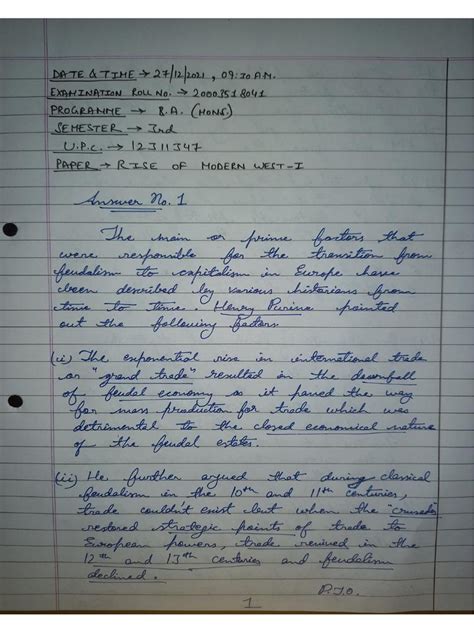 DATE & TIME → 27/12/2021, 09:30 A.M.
EXAMINATION ROLL NO. → 20003518041
PROGRAMME → B.A. (HONS.)
SEMESTER → 3rd
U.P.C. → 12311347
PAPER → RISE OF MODERN WEST-I
Answer No. 1
The main or prime factors that
were responsible for the transition from
feudalism to capitalism in Europe have
been described by various historians from
time to time. Henry Purine pointed
out the following factors
(i) The exponential rise in international trade
or "grand trade" resulted in the downfall
of feudal economy as it paved the way
for mass production for trade which was
detrimental to the closed economical nature
of the feudal estates.
(ii) He further argued that during classical
feudalism in the 10th and 11th centuries,
trade couldn't exist but when the "crusades"
restored strategic points of trade to
European powers, trade revived in the
12th and 13th centuries and feudalism
declined.
P.T.O.
1